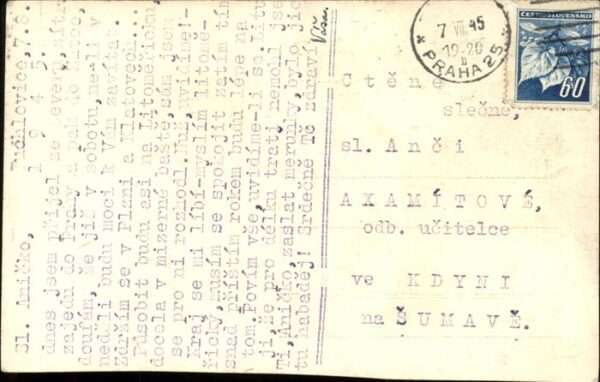 Sl. Aničko, Půchlovice,7.8.
1 9 4 5.
dnes jsem přijel ze severu, zítr
zajedu do Prahy a pak do Kutce,
doufám, že již v sobotu, neb v
neděli budu moci k Vám zavítat.
Zdržím se v Plzni a Klatovech.
Působit budu asi na Litoměřicku,
docela v mizerné baště, sám jsem
se pro ni rozhodl. Než, uvidíme!
Kraj se mi líbí-myslím litomě-
řický, musím se spokojit zatím tím
snad příštím rokem budu lépe na
tom. Povím vše, uvidíme-li se. Lituj
ji, že pro délku trati nemohl jsem
Ti, Aničko, zaslat meruňky, bylo jic
tu nabaděj! Srdečně Tě zdraví
7 VIII. 45
19-20
PRAHA 25
ČESKOSLOVENSKO
60
C t ě n é
slečně,
sl. A n č i
A X A M Í T O V É,
odb. učitelce
ve K D Y N I
na Š U M A V Ě.